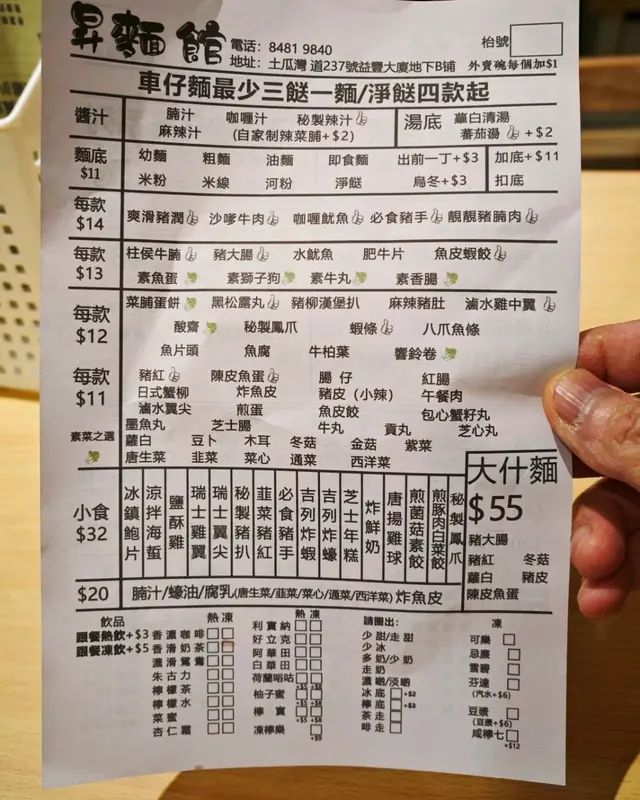 昇麵館
電話：8481 9840
枱號
地址：土瓜灣 道237號益豐大廈地下B鋪 外賣碗每個加$1
車仔麵最少三餸一麵/淨餸四款起
醬汁 腩汁 咖喱汁 秘製辣汁
麻辣汁 (自家制辣菜脯+$2)
湯底 蘿白清湯
蕃茄湯 +$2
麵底 $11 幼麵 粗麵 油麵 即食麵 出前一丁+$3 加底+$11
米粉 米線 河粉 淨餸 烏冬+$3 扣底
每款 $14 爽滑豬潤 沙嗲牛肉 咖喱魷魚 必食豬手 靚靚豬腩肉
每款 $13 柱侯牛腩 豬大腸 水魷魚 肥牛片 魚皮蝦餃
素魚蛋 素獅子狗 素牛丸 素香腸
每款 $12 菜脯蛋餅 黑松露丸 豬柳漢堡扒 麻辣豬肚 滷水雞中翼
酸齋 秘製鳳爪 蝦條 八爪魚條
魚片頭 魚腐 牛柏葉 響鈴卷
每款 $11 豬紅 陳皮魚蛋 腸仔 紅腸
日式蟹柳 炸魚皮 豬皮（小辣） 午餐肉
滷水翼尖 煎蛋 魚皮餃 包心蟹籽丸
墨魚丸 芝士腸 牛丸 貢丸 芝心丸
素菜之選 蘿白 豆卜 木耳 冬菇 金菇 紫菜
唐生菜 韭菜 菜心 通菜 西洋菜
小食 $32
冰鎮鮑片
涼拌海蜇
鹽酥雞
瑞士雞翼
瑞士翼尖
秘製豬扒
韭菜豬紅
必食豬手
吉列炸蝦
吉列炸蠔
芝士年糕
炸鮮奶
唐揚雞球
煎菌菇素餃
煎豚肉白菜餃
秘製鳳爪
大什麵
$55
豬大腸
豬紅 冬菇
蘿白 豬皮
陳皮魚蛋
$20 腩汁/蠔油/腐乳(唐生菜/韮菜/菜心/通菜/西洋菜) 炸魚皮
飲品
跟餐熱飲+$3
跟餐凍飲+$5
熱 凍
香濃咖啡
香滑奶茶
濃滑鴛鴦
朱古力
檸檬茶
檸檬水
菜蜜
杏仁霜
熱 凍
利賓納
好立克
阿華田
白華田
荷蘭谷咕
+$5 +$8
柚子蜜
+$5 +$8
檸賓
+$5 +$8
凍檸樂
+$9
請圈出：
少甜/走甜
少冰
多奶/少奶
走奶
濃啲/淡啲
冰底 +$2
檸底 +$3
茶走
啡走
凍
可樂
忌廉
雪碧
芬達
(汽水+$6)
豆漿
(豆漿+$6)
咸檸七
+$12